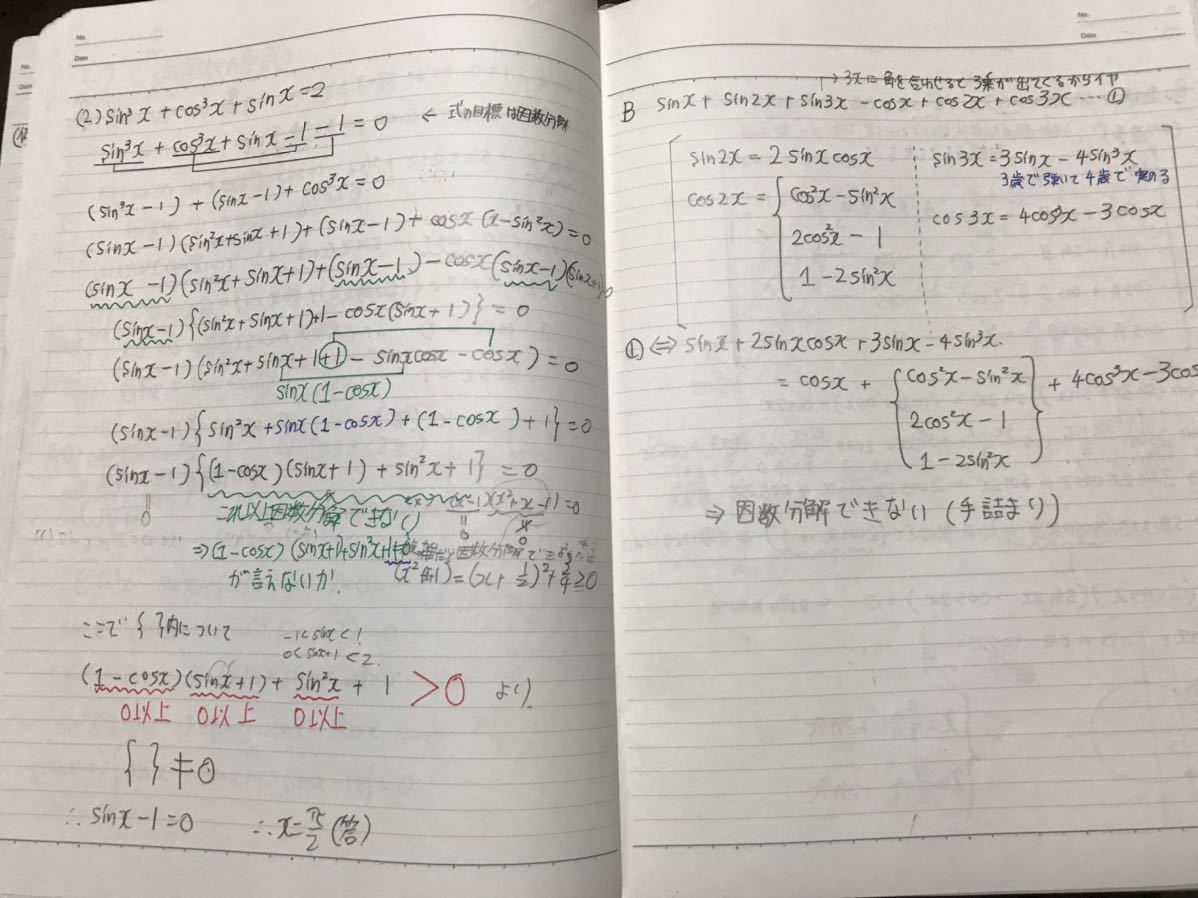 No.
Date
(2) sin³x + cos³x + sinx = 2
sin³x + cos³x + sinx − 1 − 1 = 0 ← 式の目標は因数分解
(sin³x − 1) + (sinx − 1) + cos³x = 0
(sinx − 1)(sin²x + sinx + 1) + (sinx − 1) + cosx(1 − sin²x) = 0
(sinx − 1)(sin²x + sinx + 1) + (sinx − 1) − cosx(sinx − 1)(sinx+1)=0
(sinx − 1){(sin²x + sinx + 1) + 1 − cosx(sinx + 1)} = 0
(sinx − 1)(sin²x + sinx + 1 + 1 − sinxcosx − cosx) = 0
sinx(1 − cosx)
(sinx − 1){sin²x + sinx(1 − cosx) + (1 − cosx) + 1} = 0
(sinx − 1){(1 − cosx)(sinx + 1) + sin²x + 1} = 0
=
0
ex) (x−1)(x²+x−1)=0
これ以上因数分解できない
⇒ (1 − cosx)(sinx+1)+sin²x+1≠0
因数分解できない
が言えないか.
= (x + 1/2)² + 3/4 ≧ 0
ここで { }内について
−1 < sinx < 1
0 < sinx+1 < 2.
(1 − cosx)(sinx + 1) + sin²x + 1 > 0 より.
0以上 0以上 0以上
{ } ≠ 0
∴ sinx − 1 = 0 ∴ x = π/2 (答)
No.
Date
→ 3xに角を合わせると3乗が出てくるからイヤ
B sinx + sin2x + sin3x − cosx + cos2x + cos3x … ①
sin2x = 2sinxcosx
cos2x = { cos²x − sin²x
2cos²x − 1
1 − 2sin²x
sin3x = 3sinx − 4sin³x
3歳で引いて4歳で実のる
cos3x = 4cos³x − 3cosx
① ⇔ sinx + 2sinxcosx + 3sinx − 4sin³x.
= cosx + { cos²x − sin²x } + 4cos³x − 3cos
2cos²x − 1
1 − 2sin²x
⇒ 因数分解できない (手詰まり)